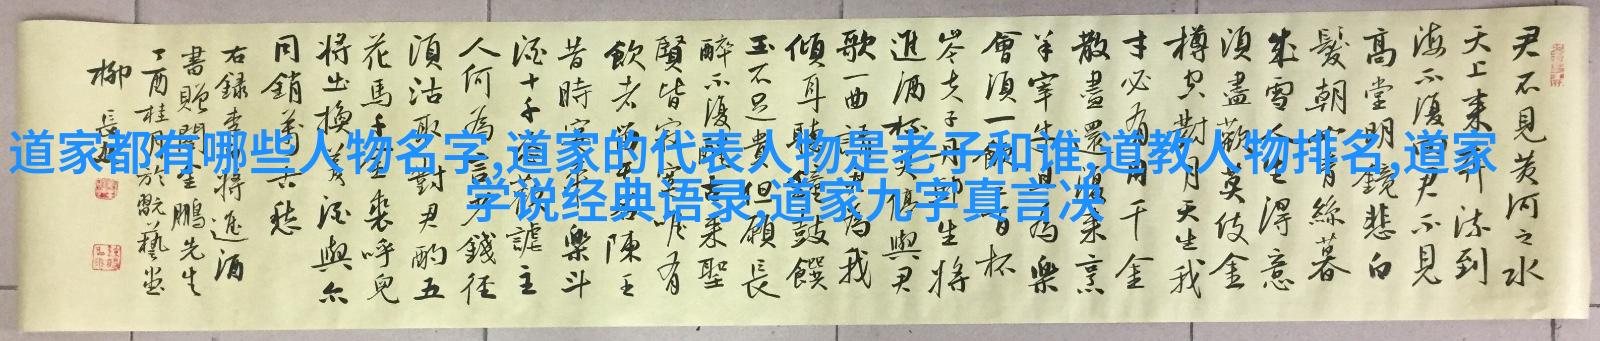 君不見黄河之水
天上来奔流到
海不復回君不見
高堂明鏡悲白
髮朝如青絲暮
成雪人生得意
須盡歡莫使金
樽空對月天生我
才必有用千金
散盡還復來烹
羊宰牛且為樂
會須一飲三百杯
岑夫子丹丘生將
進酒杯莫停與君
歌一曲請君為我
傾耳聽鐘鼓饌
玉不足貴但願長
醉不復醒古来聖
賢皆寂寞唯有
飲者留其名陳王
昔時宴平樂斗
酒十千恣歡謔主
人何為言少錢徑
須沽取對君酌五
花馬千金裘呼兒
將出換美酒與尔
同銷萬古愁
右録李白將進酒
書贈閻金鵬先生
丁酉桂月於翫藝堂
柳長
道家都有哪些人物名字,道家的代表人物是老子和谁,道教人物排名,道家
学说经典语录,道家九字真言决